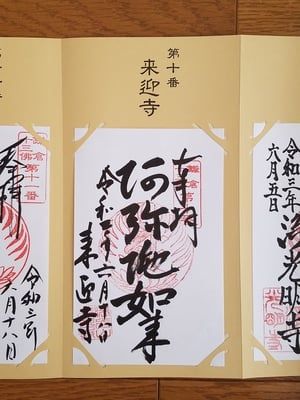 第十番
来迎寺
奉拝
阿弥陀如来
令和三年六月十八日
来迎寺
鎌倉
令和三年
六月五日
光明寺
奉拝
鎌倉
十三佛第十一番
令和三年
六月十八日